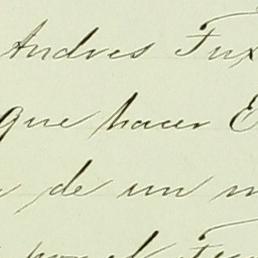 Andres Fux
que hacer E
de un m
por el